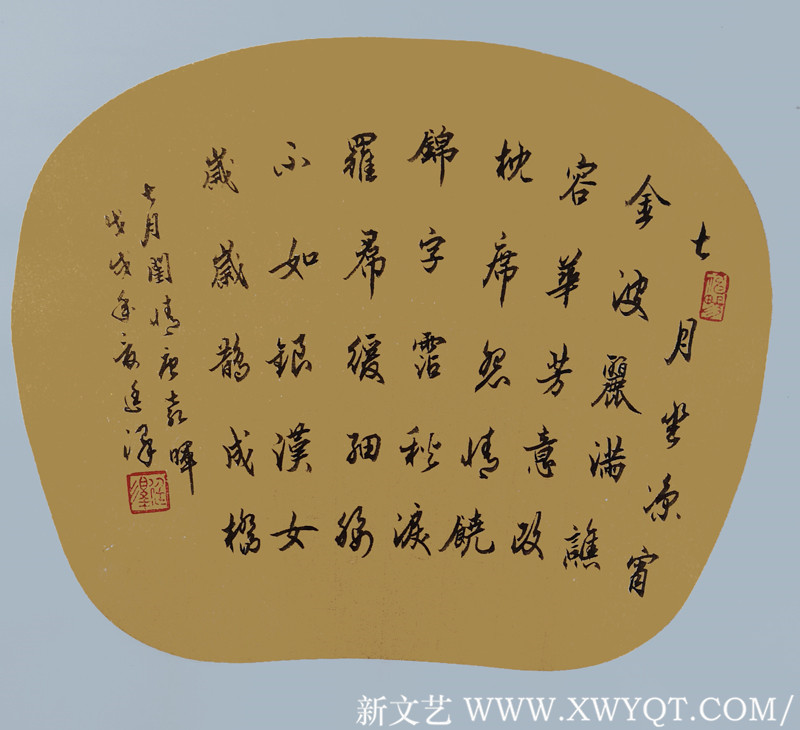 七月坐凉宵
金波麗满譙
容華芳意改
枕席怨情饒
錦字霑秋淚
羅帬緩細腰
不如銀漢女
歲歲鵲成橋
七月閨情唐袁暉
戊戌年夏廷澤
新文艺 WWW.XWYQT.COM/